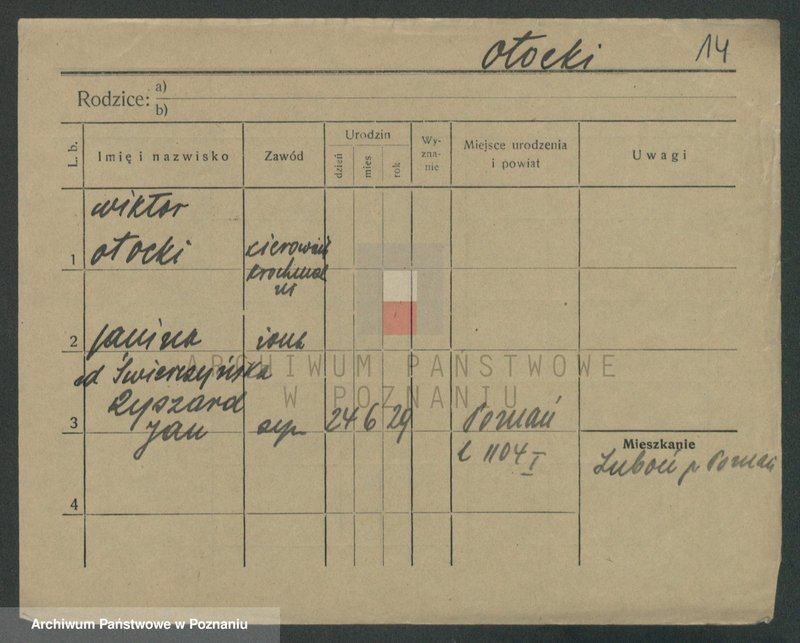 Otocki 14
Rodzice: a)
b)
L. b.
Imię i nazwisko
Zawód
Urodzin
dzień
mies.
rok
Wy-
zna-
nie
Miejsce urodzenia
i powiat
Uwagi
Wiktor
1 Otocki kierownik
krochmal
ni
2 Janina żona
od Świerczyńska
Ryszard
3 Jan syn 24 6 29 Poznań
Jan
L 1104 I
Mieszkanie
Luboń p Poznań
4
ARCHIWUM PAŃSTWOWE
W POZNANIU
Archiwum Państwowe w Poznaniu